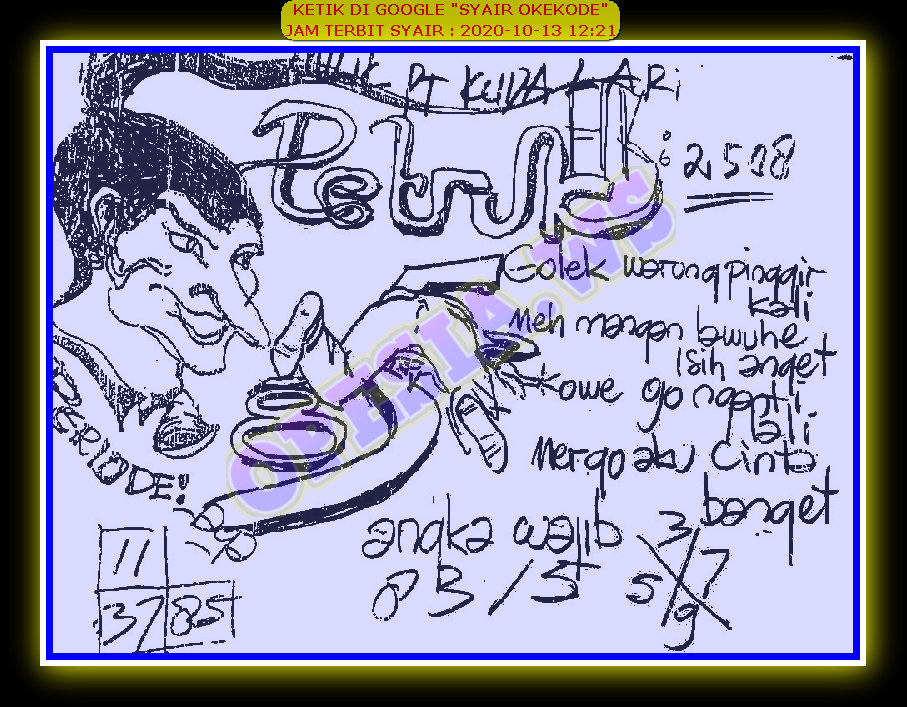 KETIK DI GOOGLE "SYAIR OKEKODE"
JAM TERBIT SYAIR : 2020-10-13 12:21
PT KUDA LARi
2508
Golek warung pinggir
kali
Meh mangan buwuhe
isih anget
Kowe go nganti
lali
Mergo aku cinta
banget
OPESIA.WS
PERIODE!
angka wajib
83/5
3
5 7
9
11
37 85